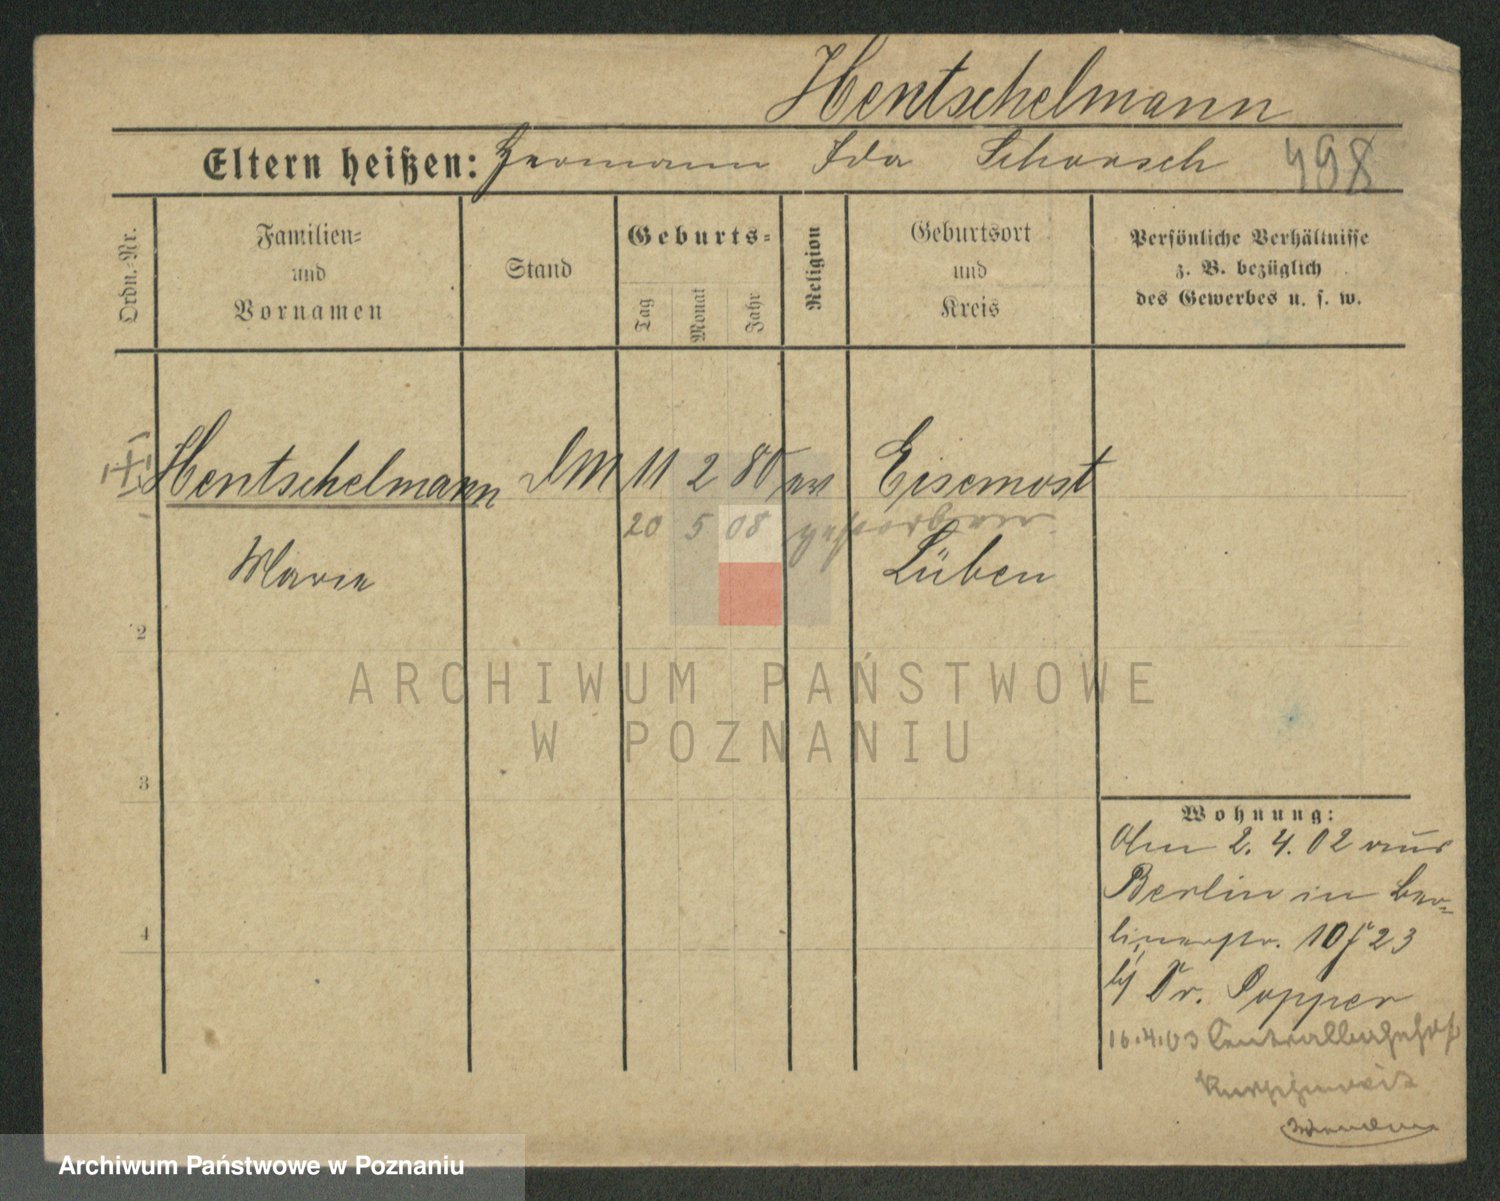 Hentschelmann
Eltern heißen: Hermann Ida Schorsch 498
Ordn.-Nr.
Familien-
und
Vornamen
Stand
Geburts-
Tag
Monat
Jahr
Religion
Geburtsort
und
Kreis
Persönliche Verhältnisse
z. B. bezüglich
des Gewerbes u. s. w.
Hentschelmann DM 11 2 80 ev Eisemost
20 5 08 gestorben
Marie Lüben
2
3
4
ARCHIWUM PAŃSTWOWE
W POZNANIU
Wohnung:
2. 4. 02 aus
Berlin in Ber-
linerstr. 10 23
Dr. Popper
16.4.03 Centralbahnhof
Archiwum Państwowe w Poznaniu